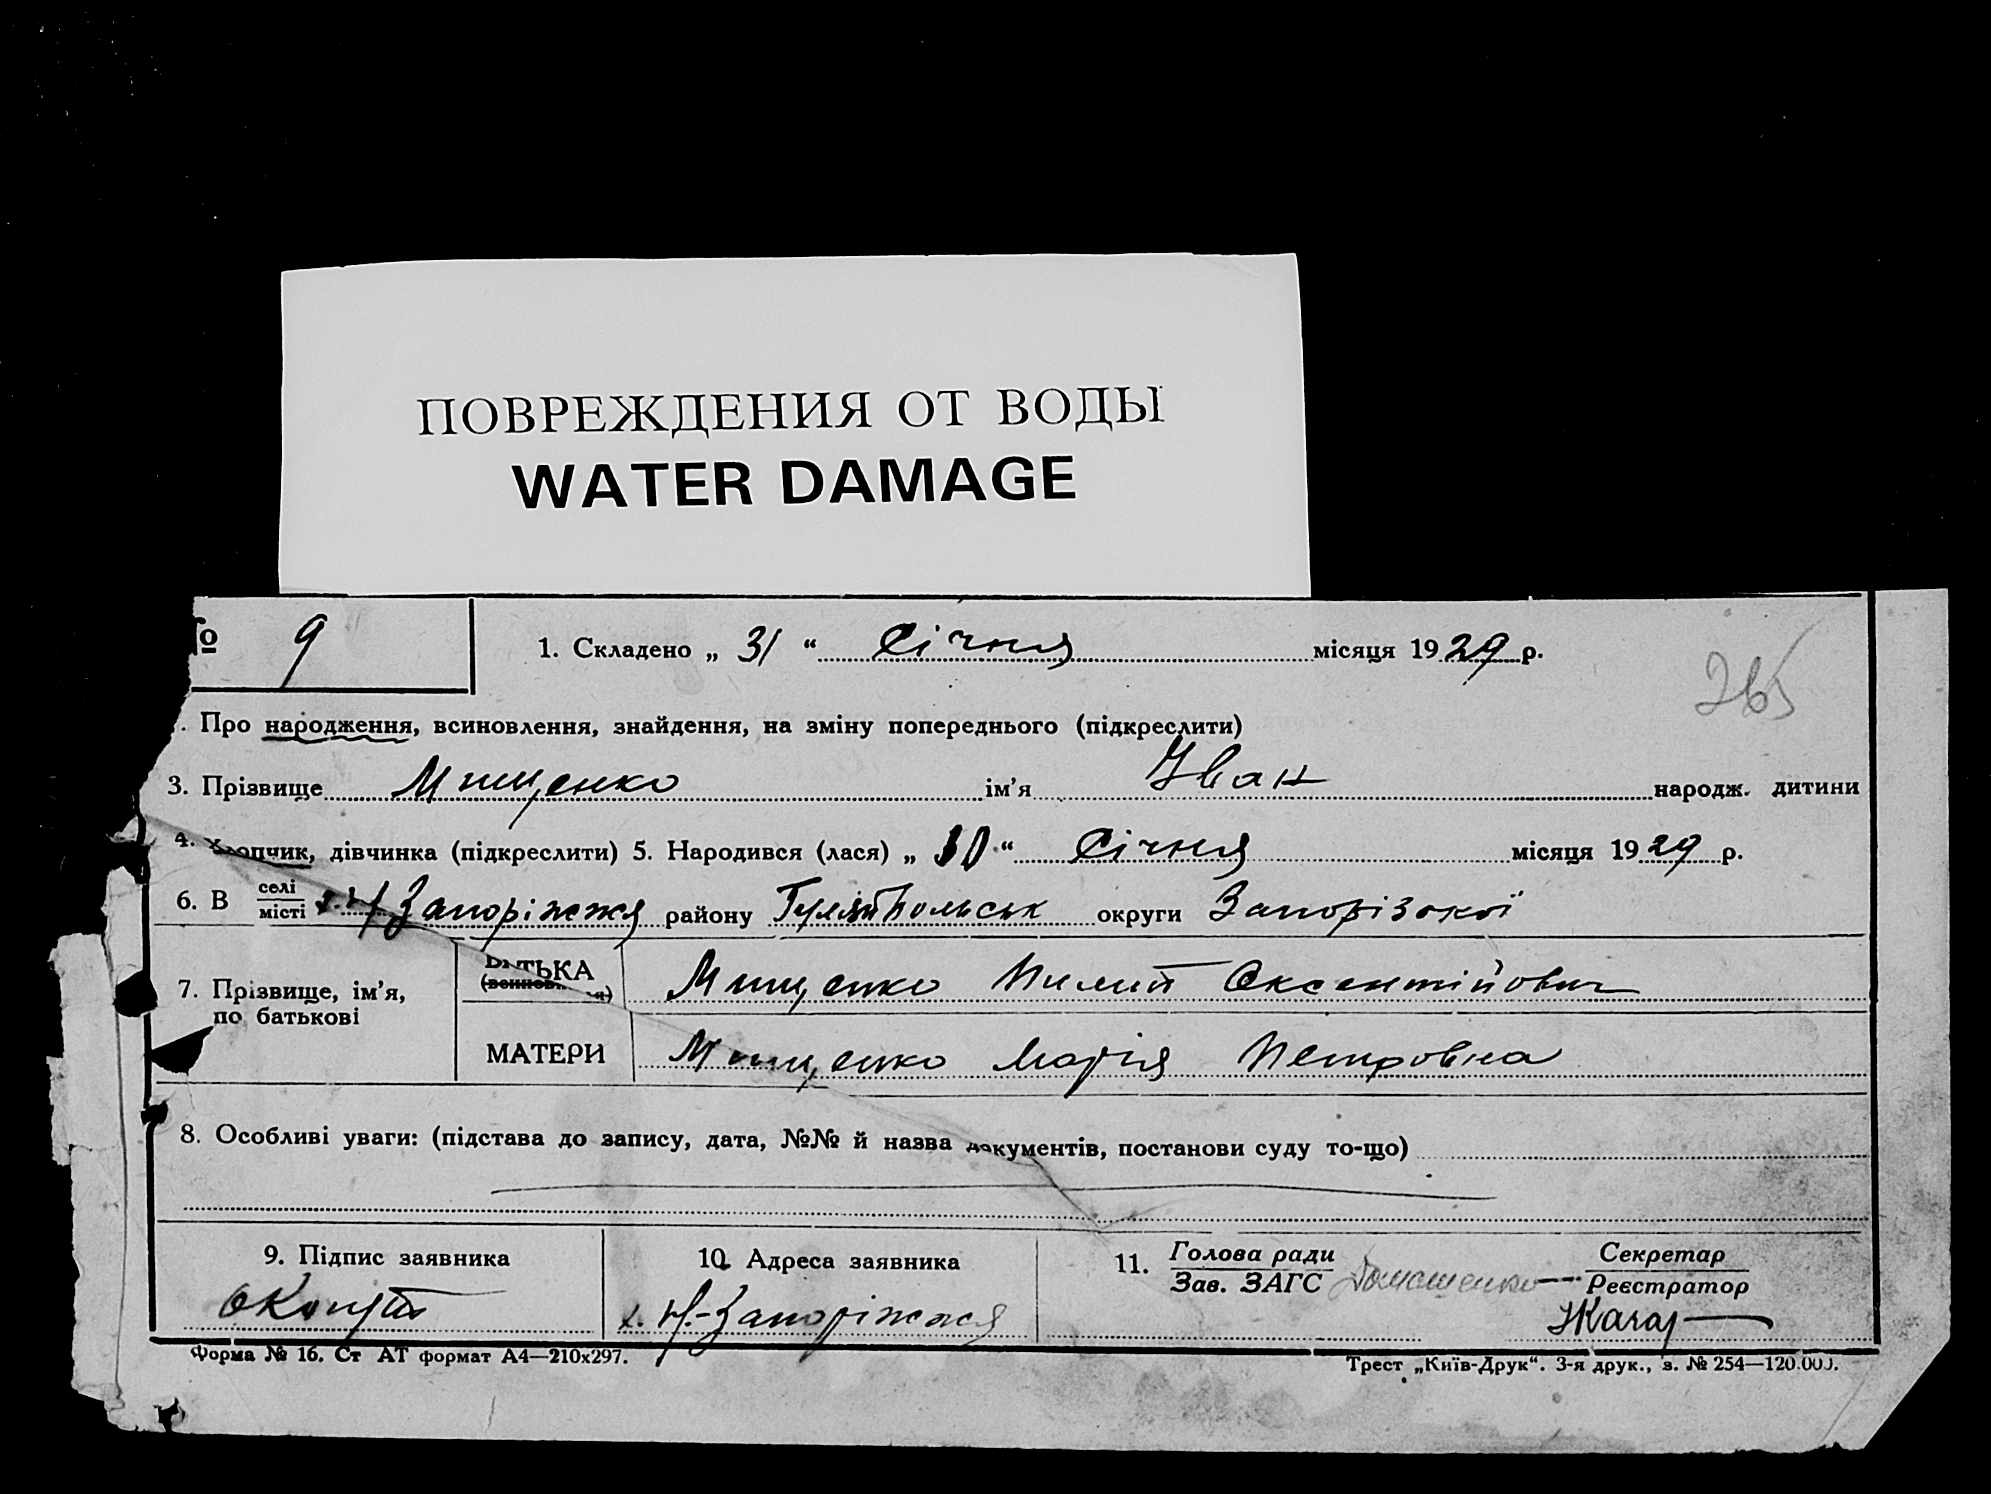 ПОВРЕЖДЕНИЯ ОТ ВОДЫ
WATER DAMAGE
№ 9 1. Складено „ 31 “ Січня місяця 1929 р.
265
Про народження, всиновлення, знайдення, на зміну попереднього (підкреслити)
3. Прізвище Мищенко ім’я Иван народж. дитини
4. Хлопчик, дівчинка (підкреслити) 5. Народився (лася) „ 10 “ Січня місяця 1929 р.
6. В селі / місті х. Н Запоріжжя району Гуляйпольськ округи Запорізокої
7. Прізвище, ім’я, по батькові
БАТЬКА Мищенко Оксентійович
МАТЕРИ Мищенко Марія Петровна
8. Особливі уваги: (підстава до запису, дата, №№ й назва документів, постанови суду то-що)
9. Підпис заявника 10. Адреса заявника 11. Голова ради / Зав. ЗАГС Секретар / Реєстратор
х. Н.-Запоріжжя
Форма № 16. Ст АТ формат А4—210х297.
Трест „Київ-Друк“. 3-я друк., з. № 254—120.000.